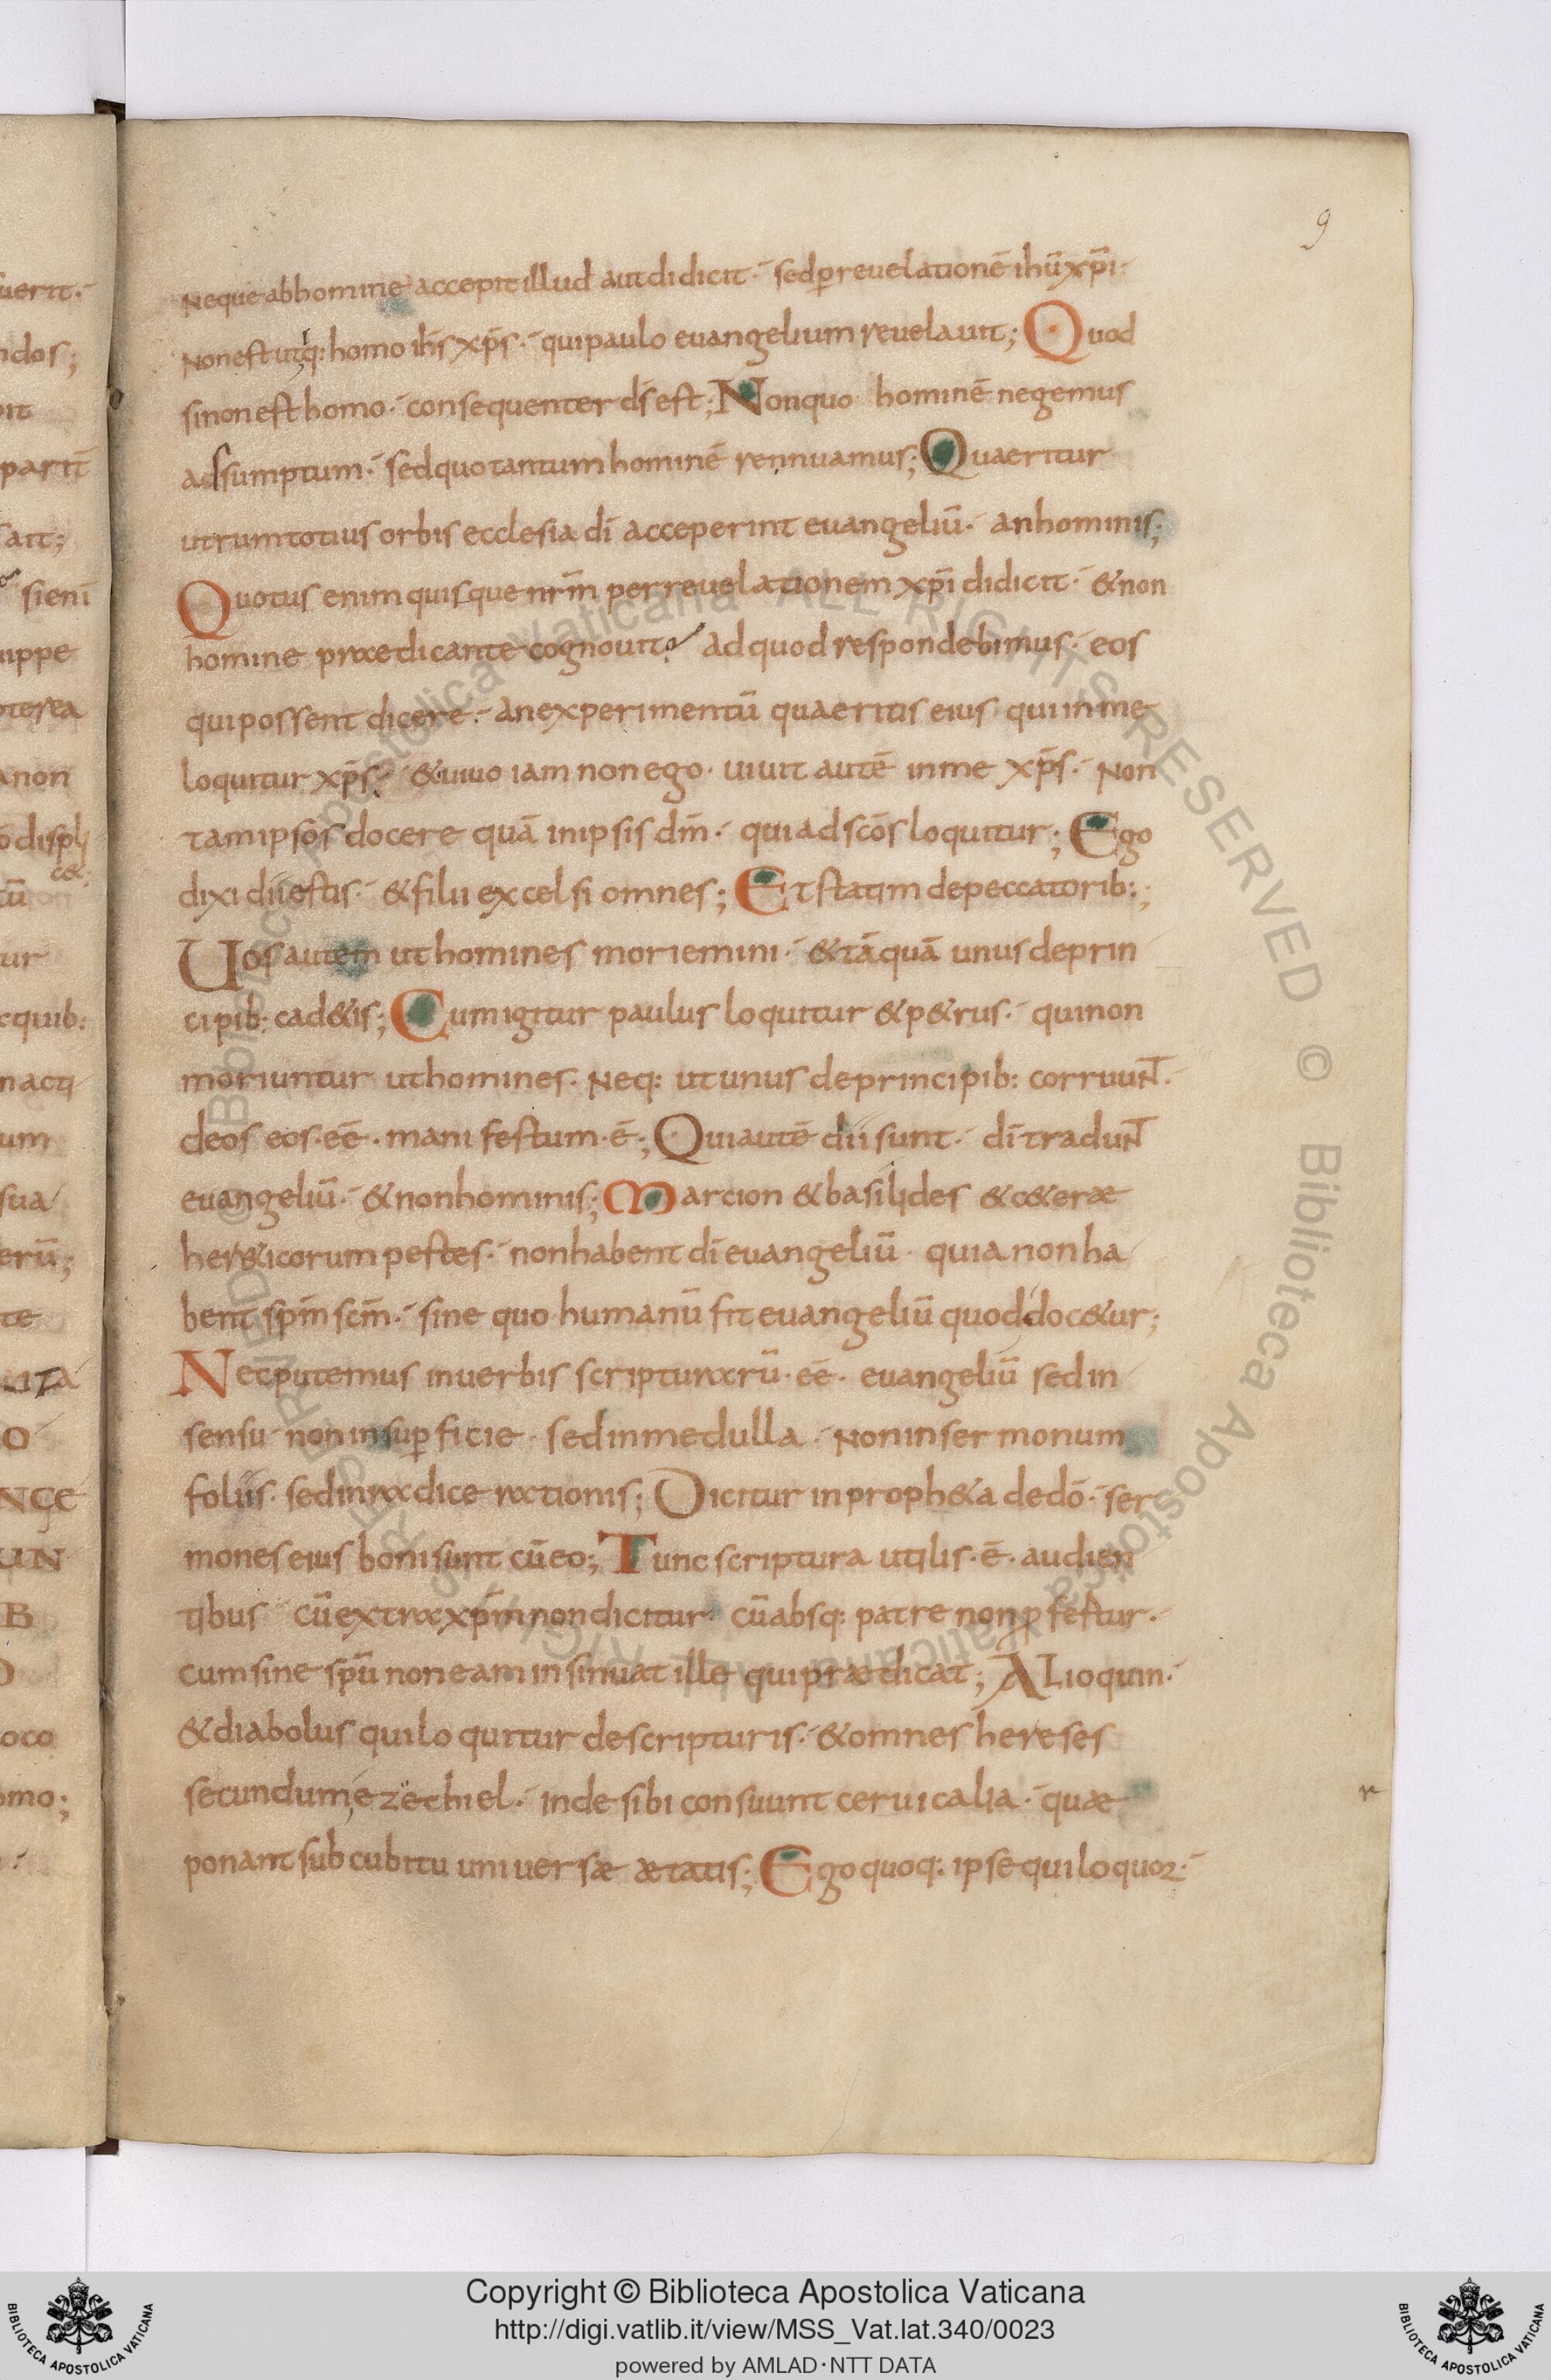 9
Neque ab homine accepit illud aut didicit· sed ꝑ reuelationē ihū xp̄i·
Non est utiq: homo ih̄s xp̄s· qui paulo euangelium reuelauit; Quod
si non est homo· consequenter d̄s est; Non quo hominē negemus
adsumptum· sed quo tantum hominē rennuamus; Quaeritur
utrum totius orbis ecclesia dī acceperint euangeliū· an hominis;
Quotus enim quisque nrm̄ per reuelationem xp̄i didicit· & non
homine praedicante cognouit? ad quod respondebimus· eos
qui possent dicere· an experimentū quaeritis eius qui in me
loquitur xp̄s? & uiuo iam non ego· uiuit autē in me xp̄s· Non
tam ipsos docere quā in ipsis dm̄· qui ad sc̄os loquitur; Ego
dixi dii estis· & filii excelsi omnes; Et statim de peccatorib:;
Uos autem ut homines moriemini· & tāquā unus de prin
cipib: cad&is; Cum igitur paulus loquitur & p&rus· qui non
moriuntur ut homines· Neq: ut unus de principib: corruuNT·
deos eos· eē· manifestum· ē; Qui autē dii sunt· dī traduNT
euangeliū· & non hominis; Marcion & basilides & c&eræ
her&icorum pestes· non habent dī euangeliū· quia non ha
bent sp̄m sc̄m· sine quo humanū fit euangeliū quod doc&ur;
Nec putemus in uerbis scripturarū· eē· euangeliū sed in
sensu non in suꝑficie· sed in medulla· Non in sermonum
foliis· sed in radice rationis; Dicitur in proph&a de dō· ser
mones eius boni sunt cū eo; Tunc scriptura utilis· ē· audien
tibus cū extra xp̄m non dicitur cū absq: patre non ꝓfertur·
cum sine sp̄u non eam insinuat ille qui prædicat; Alioquin·
& diabolus qui loquitur de scripturis· & omnes hereses
secundum ezechiel· inde sibi consuunt ceruicalia· quæ
ponant sub cubitu uniuersæ ætatis; Ego quoq: ipse qui loquor·
Copyright © Biblioteca Apostolica Vaticana
http://digi.vatlib.it/view/MSS_Vat.lat.340/0023
powered by AMLAD·NTT DATA